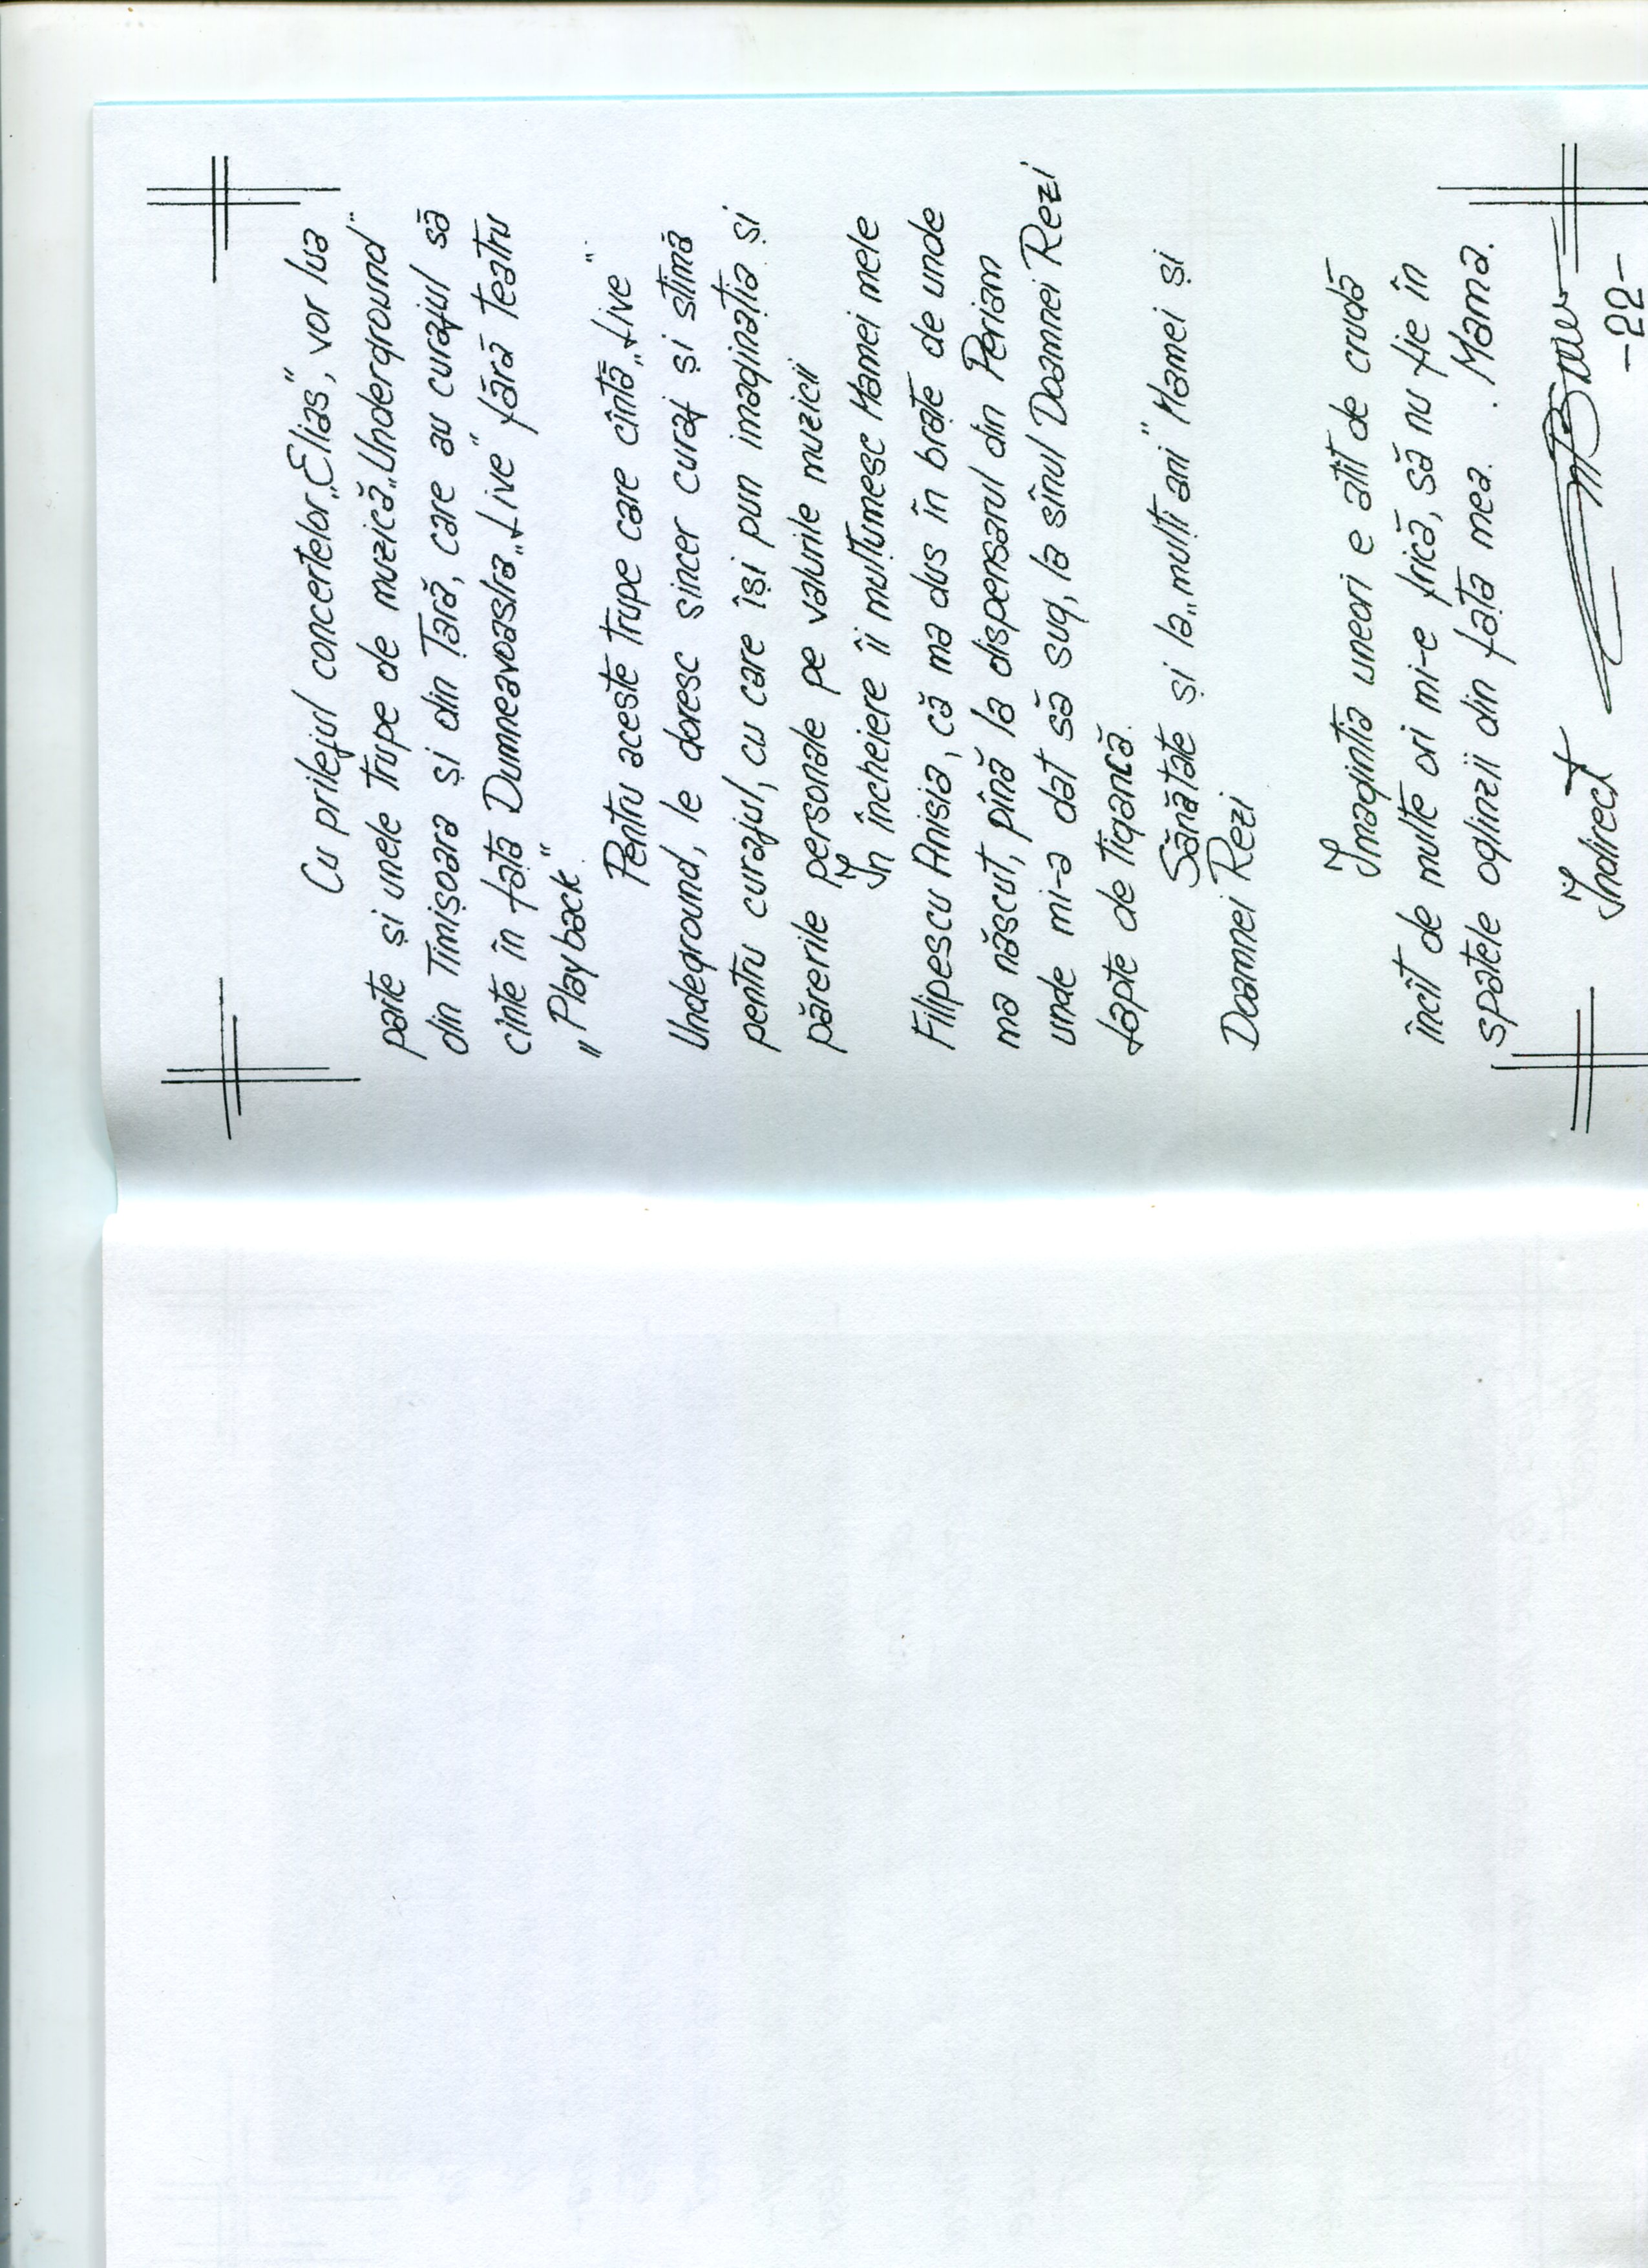 Cu prilejul concertelor „Elias”, vor lua
parte și unele trupe de muzică „Underground”
din Timișoara și din Țară, care au curajul să
cînte în fața Dumneavoastra „Live” fără teatru
„Playback”.
Pentru aceste trupe care cîntă „Live”
Undeground, le doresc sincer curaj și stimă
pentru curajul, cu care își pun imaginația și
părerile personale pe valurile muzicii
În încheiere îi mulțumesc Mamei mele
Filipescu Anisia, că ma dus în brațe de unde
ma născut, pînă la dispensarul din Periam
unde mi-a dat să sug, la sînul Doamnei Rezi
Lapte de Țigancă.
Sănătate și la „mulți ani” Mamei și
Doamnei Rezi
Imagintia uneori e atît de crudă
încît de multe ori mi-e frică, să nu fie în
spatele oglinzii din fața mea. . Mama.
Indirect
-22-